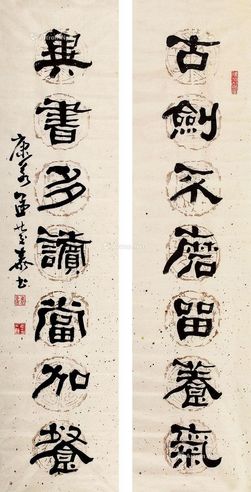 古劍不磨留養氣
異書多讀當加餐